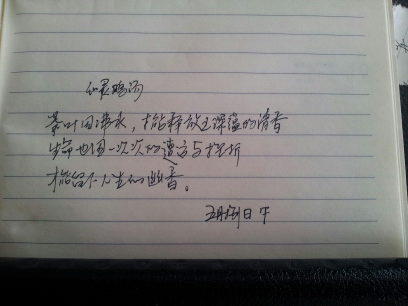 心灵鸡汤
茶叶因沸水，才能释放出深蕴的清香
生命也因一次次的遭
与挫折
才能留下人生的幽香。
五月 日 下